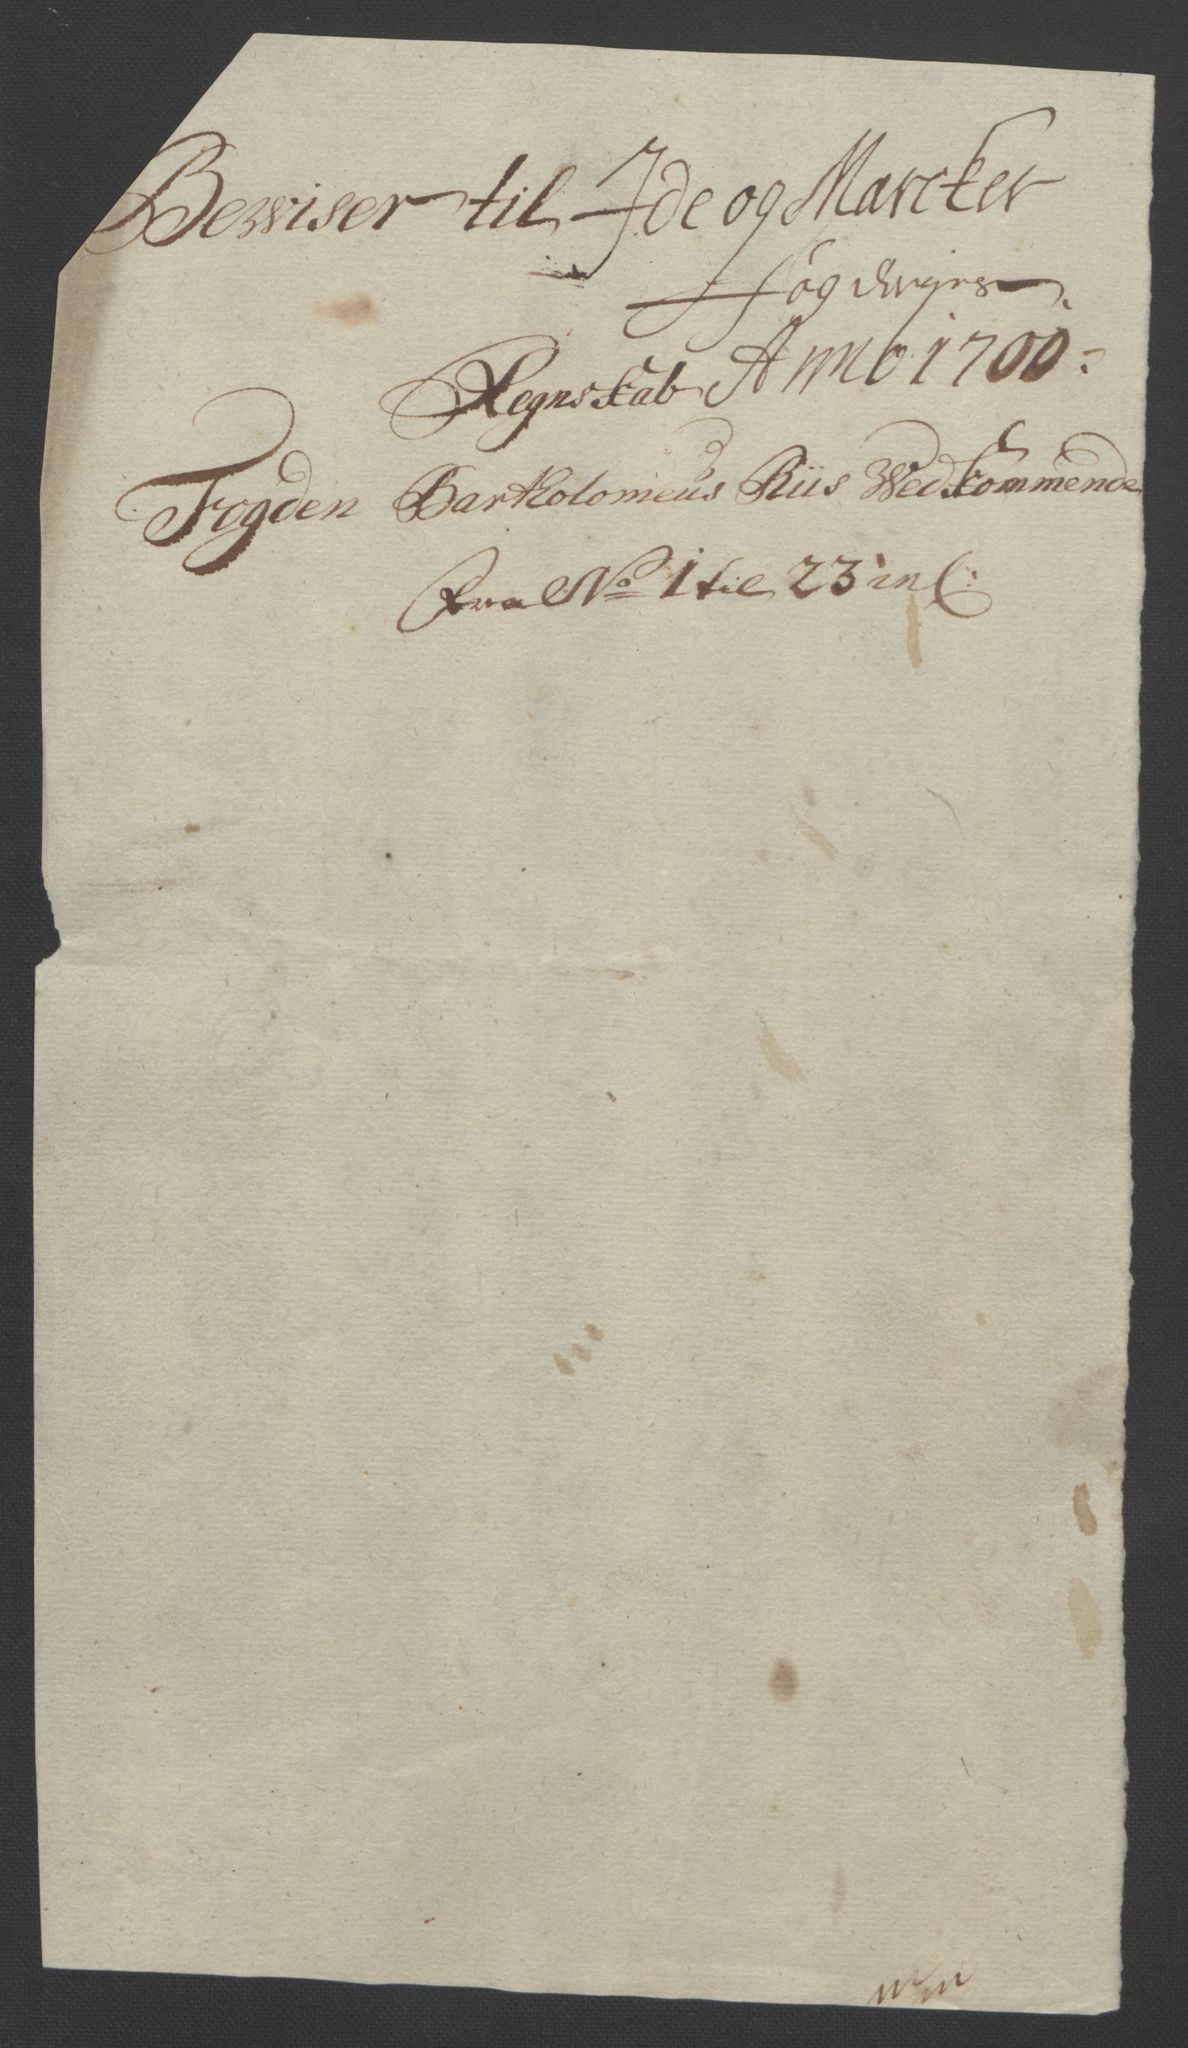 Bewiser til Ide og Marcker
fogderijes
Regnskab Anno 1700:
Fogden Bartholomeus Riis Wedkommende
fra No 1 til 23 incl: